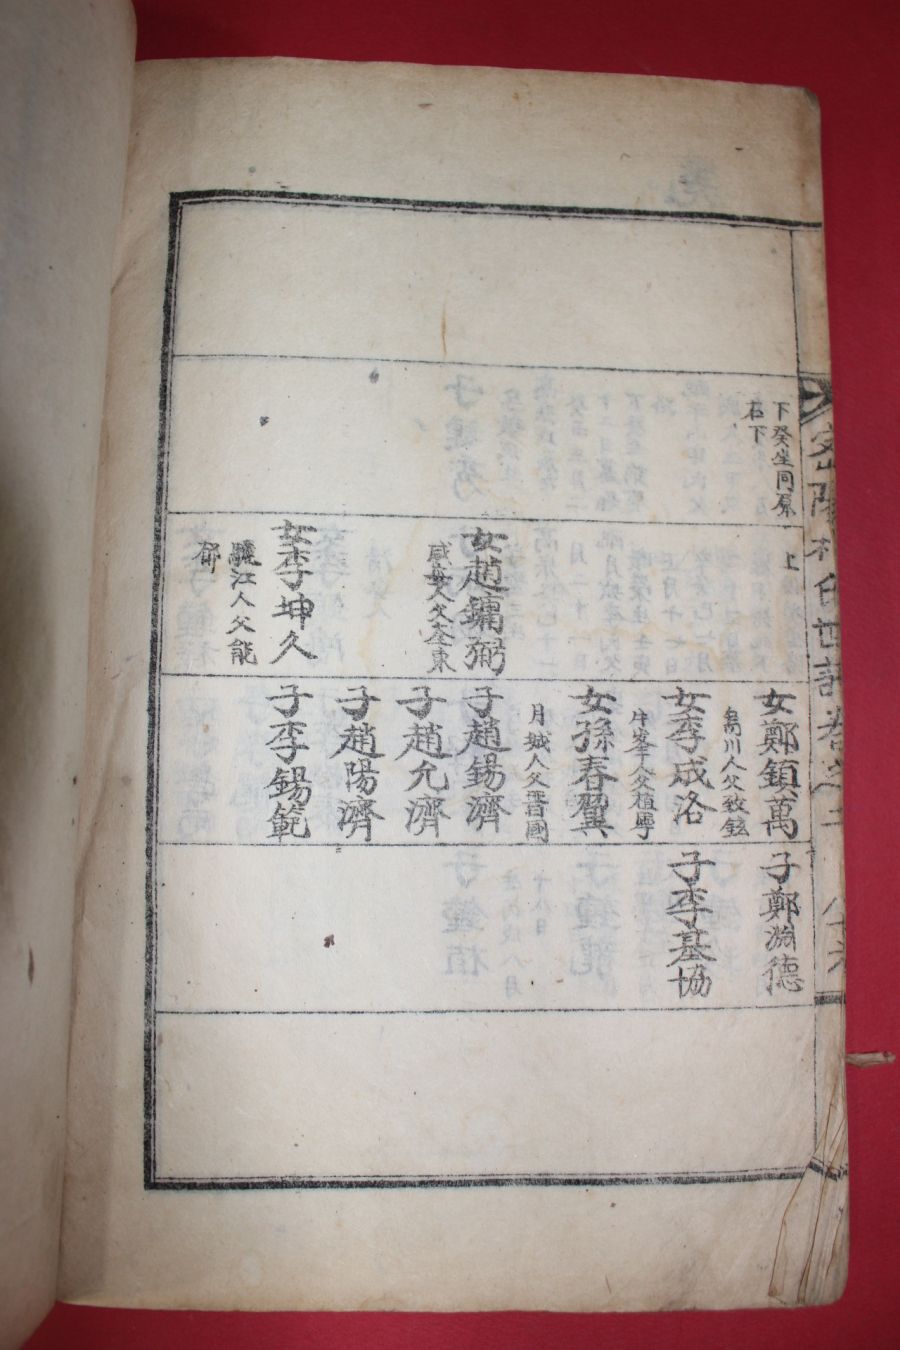 下癸坐同原
右下
上
女趙鏞弼
咸安人父奎東
女李坤久
驪江人父能
郁
女鄭鎮萬
烏川人父致鉉
女李成洛
牛峯人父植寧
女孫春翼
月城人父晋國
子趙錫濟
子趙允濟
子趙陽濟
子李錫範
子鄭淵德
子李基協
密陽朴氏世譜卷之
八十六